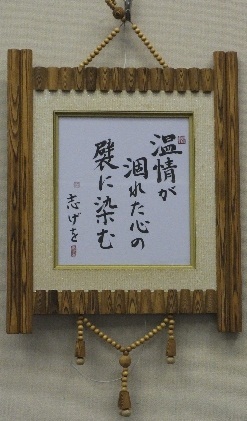 温情が
涸れた心の
襞に染む
志げを